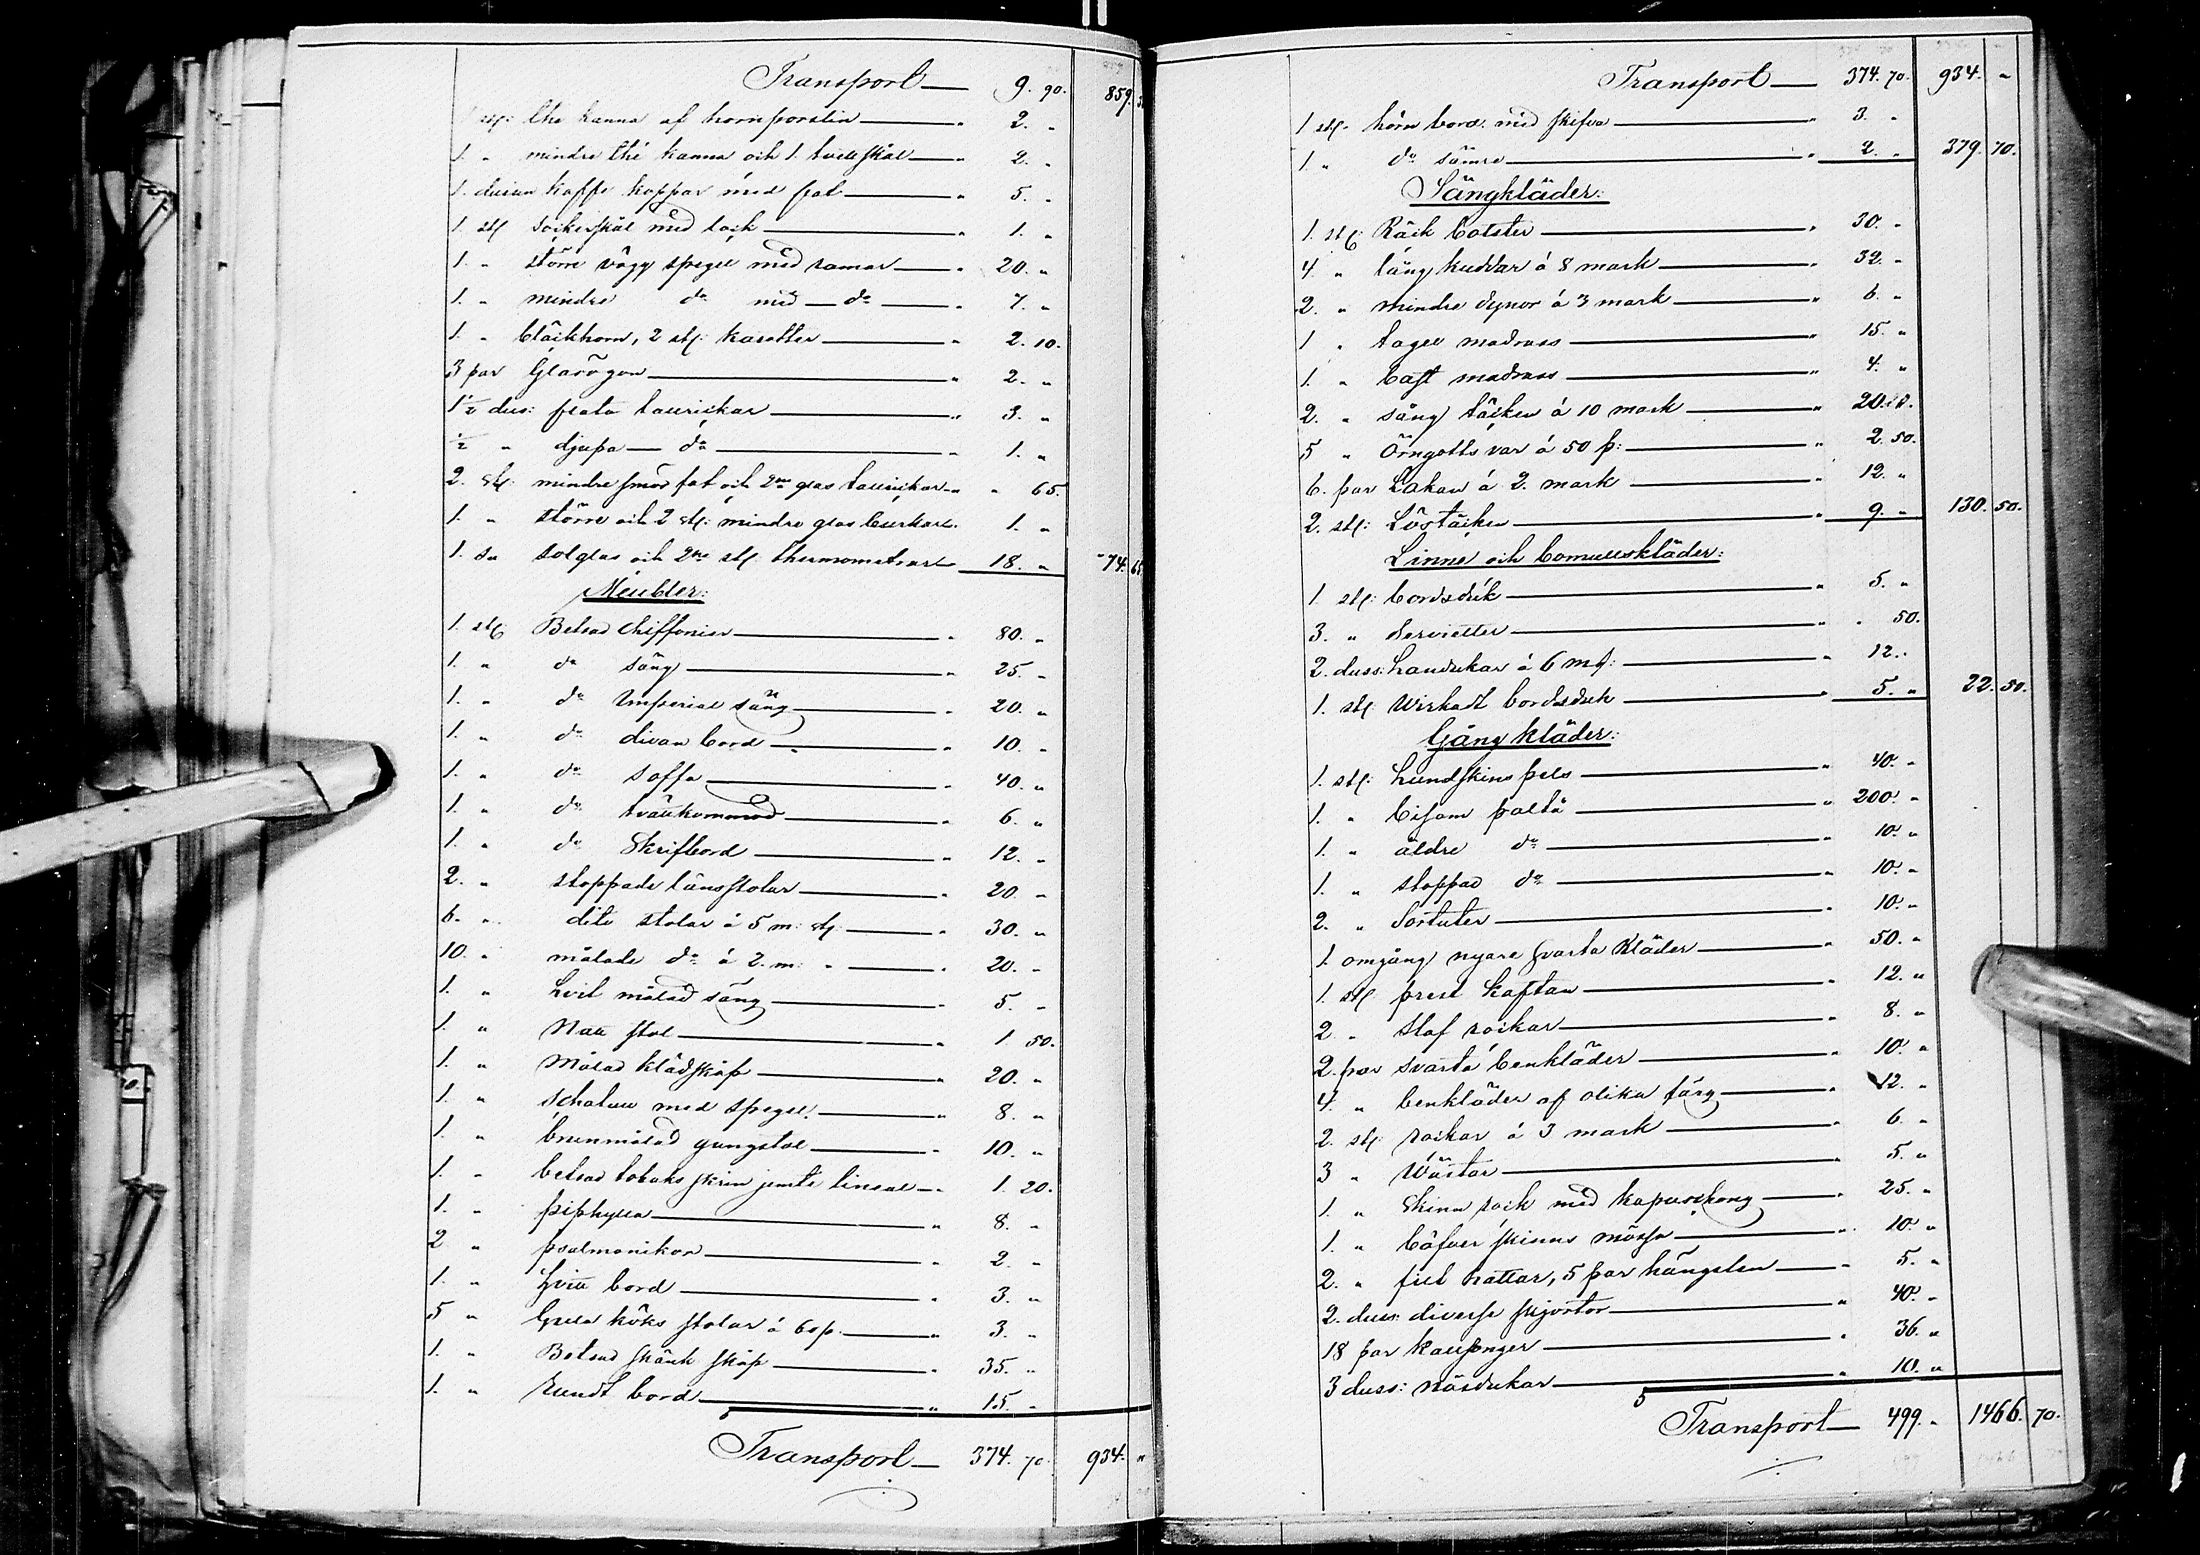 Transport — 9. 90. 859. 3
1 stf: the kanna af hornporslin — " 2. "
1. " mindre thé kanna och 1. tvellskål — " 2. "
1. dusin kaffe koppar med fat — " 5. "
1. stf sockerskål med lock — " 1. "
1. " större vägg spegel med ramar — " 20. "
1. " mindre do med — do — " 7. "
1. " bläckhorn, 2 stf: karotter — " 2. 10.
3 par Glasögon — " 2. "
1 1/2 dus: flata tallrickar — " 3. "
1/2 " djupa — do — " 1. "
2. stf: mindre smör fat och 2ne glas tallrickar — " " 65.
1. " större och 2 stf: mindre glas burkar — 1. "
1. do solglas och 2ne stf thermometrar — 18. " " 74. 65
Meubler:
1. stf: Betsad Chiffonier — " 80. "
1. " do säng — " 25. "
1. " do Imperial säng — " 20. "
1. " do divan bord — " 10. "
1. " do soffa — " 40. "
1. " do tvättkommod — " 6. "
1. " do Skrifbord — " 12. "
2. " stoppade länsstolar — " 20. "
6. " dito stolar á 5 m: stf. — " 30. "
10. " målade do á 2. m: " — " 20. "
1. " hvit målad säng — " 5. "
1. " Natt stol — " 1 50.
1. " Målad klädskåp — " 20. "
1. " schalun med spegel — " 8. "
1. " brunmålad gungstol — " 10. "
1. " betsad tobaks skrin jemte linial — " 1. 20.
1. " piphylla — " 8. "
2 " psalmonikor — " 2. "
1. " hvitt bord — " 3. "
5 " Gula köks stolar á 60 p. — " 3. "
1. " Betsad skänk skåp — " 35. "
1. " Rundt bord — " 15. "
Transport — 374. 70. 934. "
Transport — 374. 70. 934. "
1 stf. hörn bord med skifva — " 3. "
1. " do sämre — " 2. " 379. 70.
Sängkläder:
1. stf: Räck bolster — " 30. "
4. " lång kuddar á 8 mark — " 32. "
2. " mindre dynor á 3 mark — " 6. "
1 " tagel madrass — " 15. "
1. " bast madrass — " 4. "
2. " säng täcken á 10 mark — " 20. "
5 " Örngotts var á 50 p: — " 2. 50.
6. par Lakan á 2. mark — " 12. "
2. stf: Löstäcken — " 9. " 130. 50.
Linne och bomullskläder:
1. stf: bordsduk — " 5. "
3. " Servietter — " " 50.
2. duss: handukar á 6 mf: — " 12. "
1. stf. Wirkadt bordsduk — " 5. " 22. 50.
Gång kläder:
1. stf: hundskins pels — " 40. "
1. " bisam paltå — " 200. "
1. " äldre do — " 10. "
1. " stoppad do — " 10. "
2. " Sortuter — " 10. "
1. omgång nyare svarta kläder — " 50. "
1. stf. prest kaftan — " 12. "
2 " Slaf rockar — " 8. "
2. par svarta benkläder — " 10. "
4. " benkläder af olika färg — " 12. "
2. stf: rockar á 3 mark — " 6. "
3 " Wästar — " 5. "
1. " Skinn rock med kapuschong — " 25. "
1. " bäfver skinns mössa — " 10. "
2. " filt hattar, 5 par hängslen — " 5. "
2. duss: diverse skjortor — " 40. "
18 par kalsonger — " 36. "
3 duss: näsdukar — " 10. "
Transport — 499. " 1466. 70.